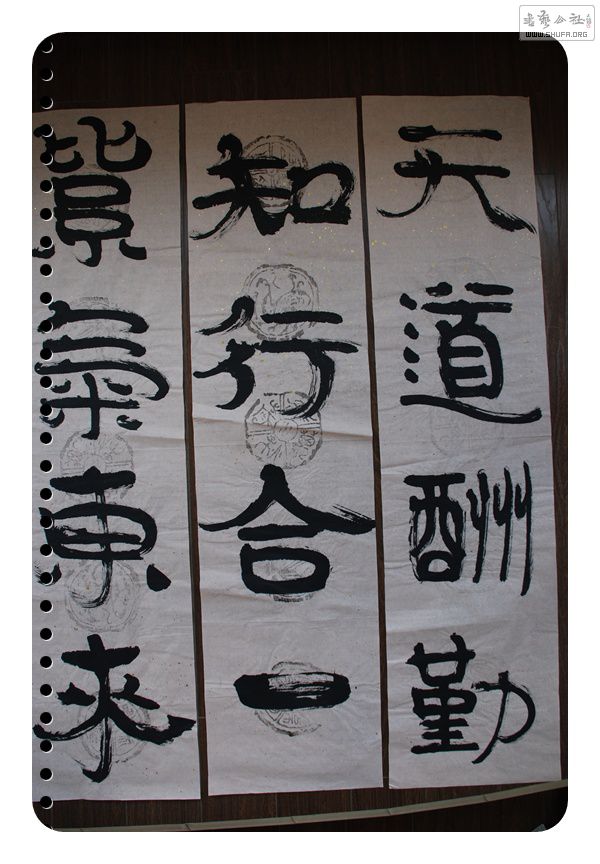 書藝公社
WWW.SHUFA.ORG
天道酬勤
知行合一
紫氣東來